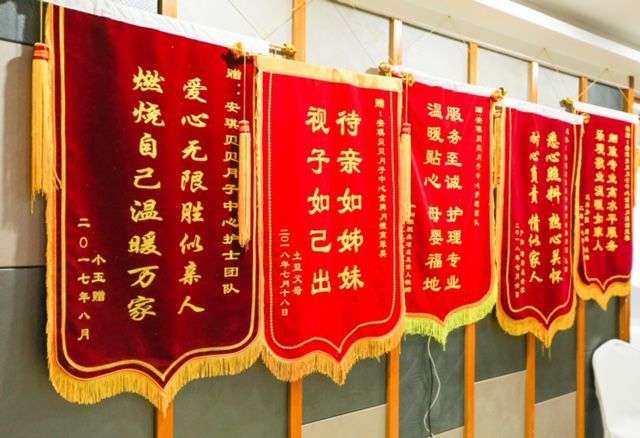 赠：安琪贝贝月子中心护士团队
爱心无限胜似亲人
燃烧自己温暖万家
小玉赠
二〇一七年八月
赠：安琪贝贝月子中心金牌月嫂
待亲如姊妹
视子如己出
土豆父母
二〇一八年七月十八日
赠：安琪贝贝月子中心护理团队
服务至诚 护理专业
温暖贴心 母婴福地
悉心照料 热心关怀
耐心负责 情似家人
专业高水平服务